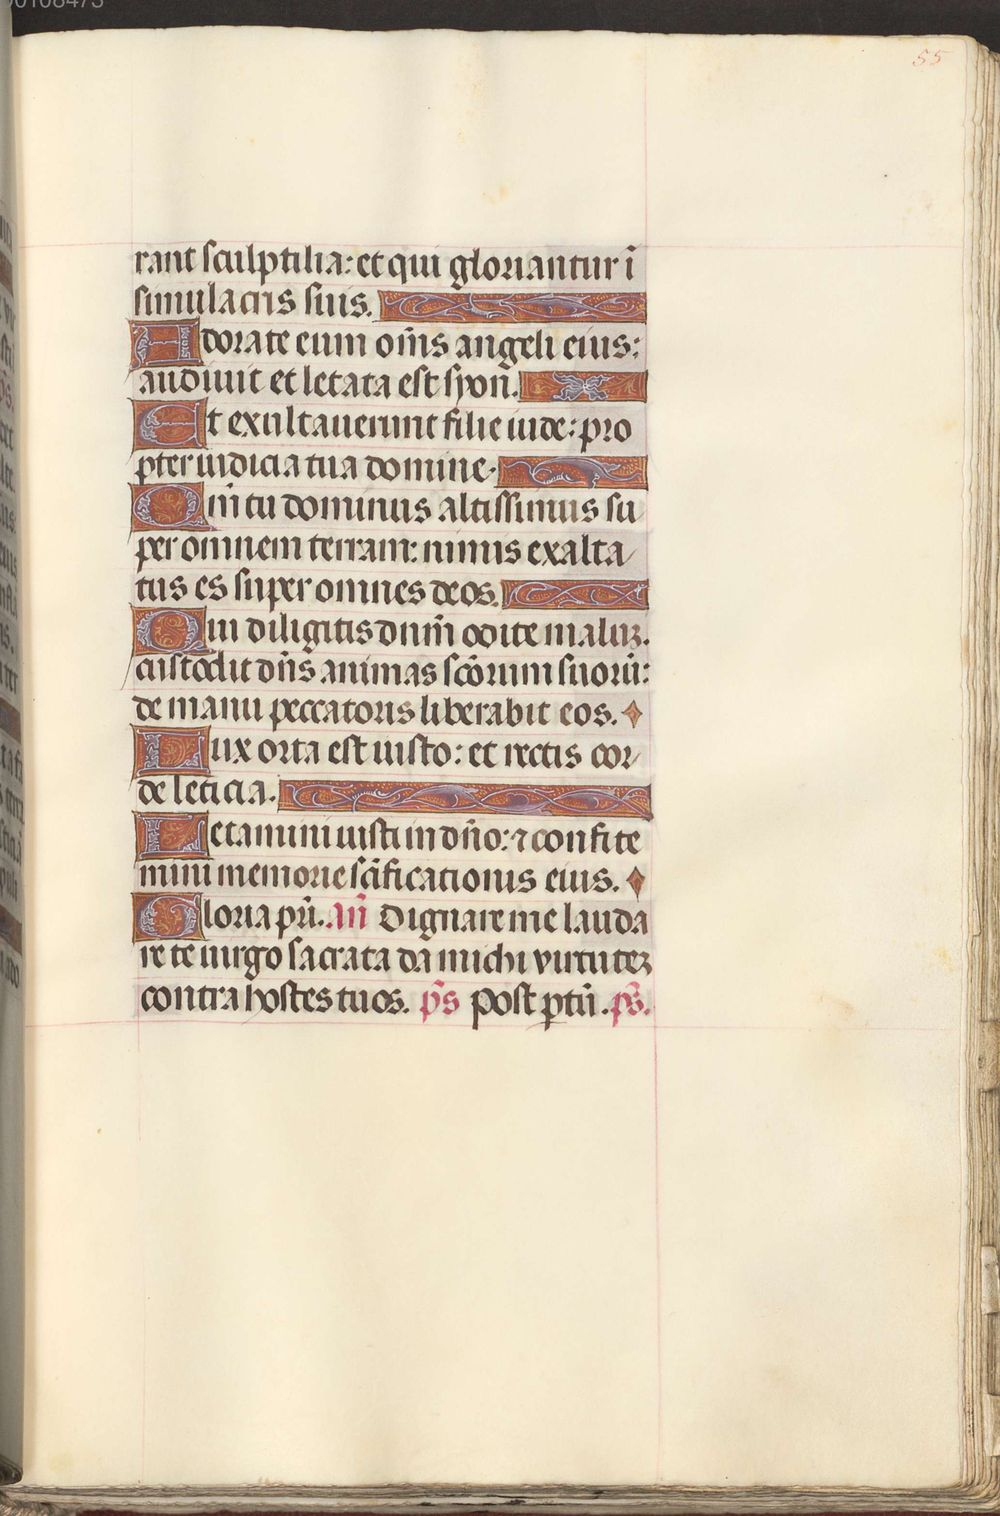 55
rant sculptilia: et qui gloriantur ī
simulacris suis.
Adorate eum om̄s angeli eius:
audiuit et letata est syon̄.
Et exultauerunt filie iude: pro
pter iudicia tua domine.
Qm̄ tu dominus altissimus su
per omnem terram: nimis exalta
tus es super omnes deos.
Qui diligitis dn̄m odite maluꝫ.
custodit dn̄s animas sc̄orum suorū:
de manu peccatoris liberabit eos.
Lux orta est iusto: et rectis cor
de leticia.
Letamini iusti in dn̄o: ⁊ confite
mini memorie sc̄ificationis eius.
Gloria pr̄i. An̄ Dignare me lauda
re te uirgo sacrata da michi virtuteꝫ
contra hostes tuos. p̄s Post ptū. p̄s.